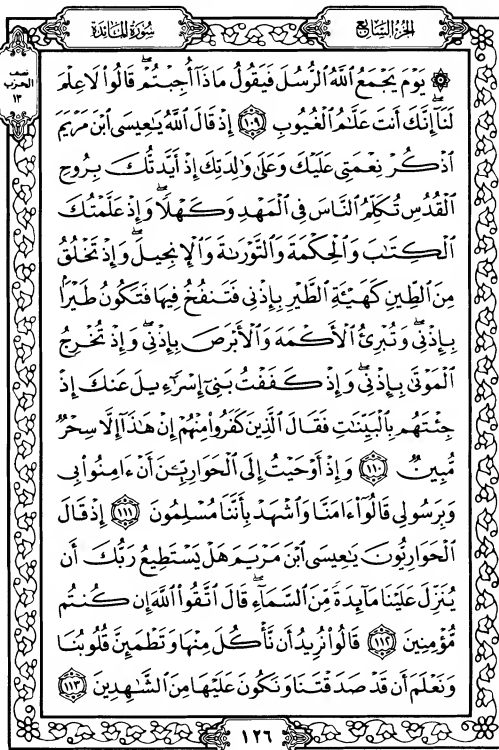 سُورَةُ المَائدَة
الجُزْءُ السَّابِعُ
نصف
الحِزب
١٣
۞ يَوْمَ يَجْمَعُ ٱللَّهُ ٱلرُّسُلَ فَيَقُولُ مَاذَآ أُجِبْتُمْۖ قَالُوا۟ لَا عِلْمَ
لَنَآۖ إِنَّكَ أَنتَ عَلَّٰمُ ٱلْغُيُوبِ ١٠٩ إِذْ قَالَ ٱللَّهُ يَٰعِيسَى ٱبْنَ مَرْيَمَ
ٱذْكُرْ نِعْمَتِى عَلَيْكَ وَعَلَىٰ وَٰلِدَتِكَ إِذْ أَيَّدتُّكَ بِرُوحِ
ٱلْقُدُسِ تُكَلِّمُ ٱلنَّاسَ فِى ٱلْمَهْدِ وَكَهْلًاۖ وَإِذْ عَلَّمْتُكَ
ٱلْكِتَٰبَ وَٱلْحِكْمَةَ وَٱلتَّوْرَىٰةَ وَٱلْإِنجِيلَۖ وَإِذْ تَخْلُقُ
مِنَ ٱلطِّينِ كَهَيْـَٔةِ ٱلطَّيْرِ بِإِذْنِى فَتَنفُخُ فِيهَا فَتَكُونُ طَيْرًۢا
بِإِذْنِىۖ وَتُبْرِئُ ٱلْأَكْمَهَ وَٱلْأَبْرَصَ بِإِذْنِىۖ وَإِذْ تُخْرِجُ
ٱلْمَوْتَىٰ بِإِذْنِىۖ وَإِذْ كَفَفْتُ بَنِىٓ إِسْرَٰٓءِيلَ عَنكَ إِذْ
جِئْتَهُم بِٱلْبَيِّنَٰتِ فَقَالَ ٱلَّذِينَ كَفَرُوا۟ مِنْهُمْ إِنْ هَٰذَآ إِلَّا سِحْرٌ
مُّبِينٌ ١١٠ وَإِذْ أَوْحَيْتُ إِلَى ٱلْحَوَارِيِّـۧنَ أَنْ ءَامِنُوا۟ بِى
وَبِرَسُولِى قَالُوٓا۟ ءَامَنَّا وَٱشْهَدْ بِأَنَّنَا مُسْلِمُونَ ١١١ إِذْ قَالَ
ٱلْحَوَارِيُّونَ يَٰعِيسَى ٱبْنَ مَرْيَمَ هَلْ يَسْتَطِيعُ رَبُّكَ أَن
يُنَزِّلَ عَلَيْنَا مَآئِدَةً مِّنَ ٱلسَّمَآءِۖ قَالَ ٱتَّقُوا۟ ٱللَّهَ إِن كُنتُم
مُّؤْمِنِينَ ١١٢ قَالُوا۟ نُرِيدُ أَن نَّأْكُلَ مِنْهَا وَتَطْمَئِنَّ قُلُوبُنَا
وَنَعْلَمَ أَن قَدْ صَدَقْتَنَا وَنَكُونَ عَلَيْهَا مِنَ ٱلشَّٰهِدِينَ ١١٣
١٢٦